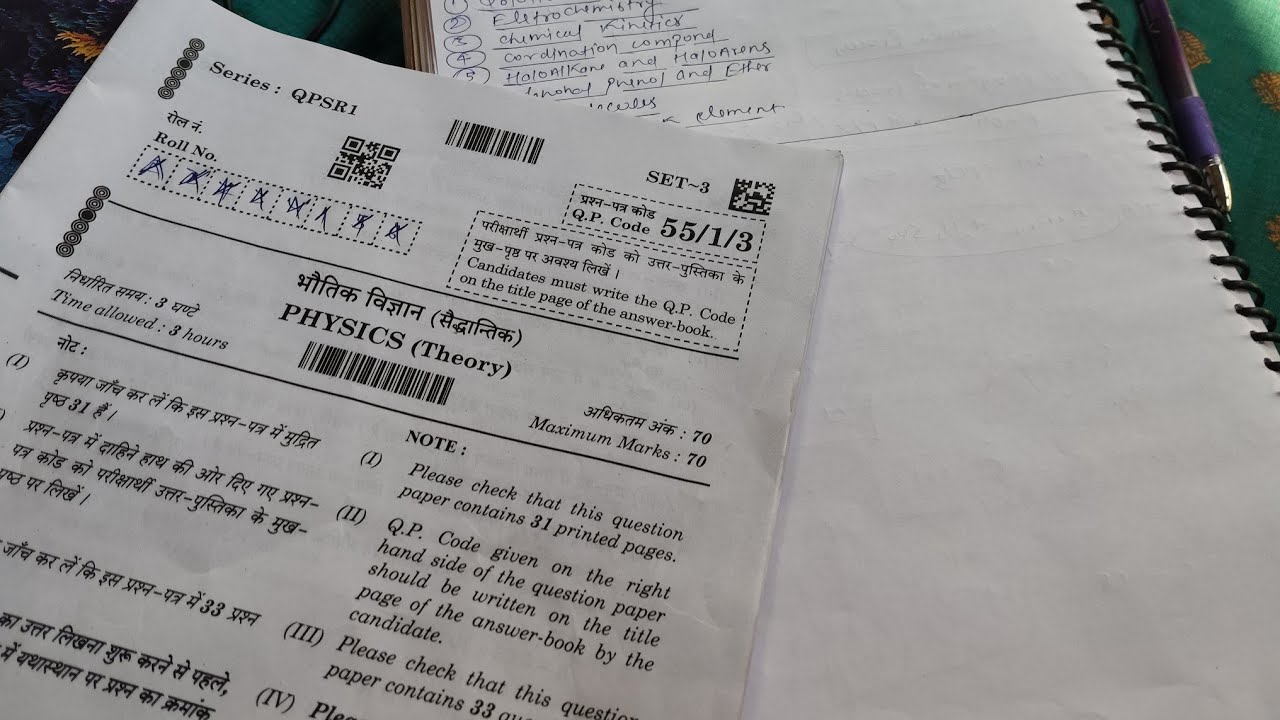 ② Eletrochemistry
③ chemical Kinetics
④ cordination compond
⑤ HaloAlkane and HaloArens
Phenol and Ether
element
Series : QPSR1
SET~3
रोल नं.
Roll No.
प्रश्न-पत्र कोड
Q.P. Code 55/1/3
परीक्षार्थी प्रश्न-पत्र कोड को उत्तर-पुस्तिका के
मुख-पृष्ठ पर अवश्य लिखें ।
Candidates must write the Q.P. Code
on the title page of the answer-book.
भौतिक विज्ञान (सैद्धान्तिक)
PHYSICS (Theory)
निर्धारित समय : 3 घण्टे
Time allowed : 3 hours
अधिकतम अंक : 70
Maximum Marks : 70
नोट :
(I) कृपया जाँच कर लें कि इस प्रश्न-पत्र में मुद्रित
पृष्ठ 31 हैं ।
प्रश्न-पत्र में दाहिने हाथ की ओर दिए गए प्रश्न-
पत्र कोड को परीक्षार्थी उत्तर-पुस्तिका के मुख-
पृष्ठ पर लिखें ।
जाँच कर लें कि इस प्रश्न-पत्र में 33 प्रश्न
का उत्तर लिखना शुरू करने से पहले,
में यथास्थान पर प्रश्न का क्रमांक
NOTE :
(I) Please check that this question
paper contains 31 printed pages.
(II) Q.P. Code given on the right
hand side of the question paper
should be written on the title
page of the answer-book by the
candidate.
(III) Please check that this question
paper contains 33
(IV)